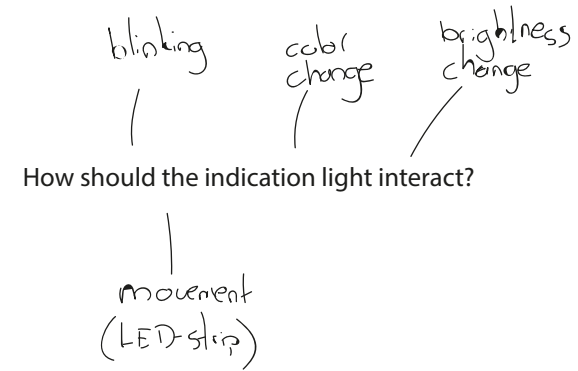 blinking
color
change
brightness
change
How should the indication light interact?
movement
(LED-strip)